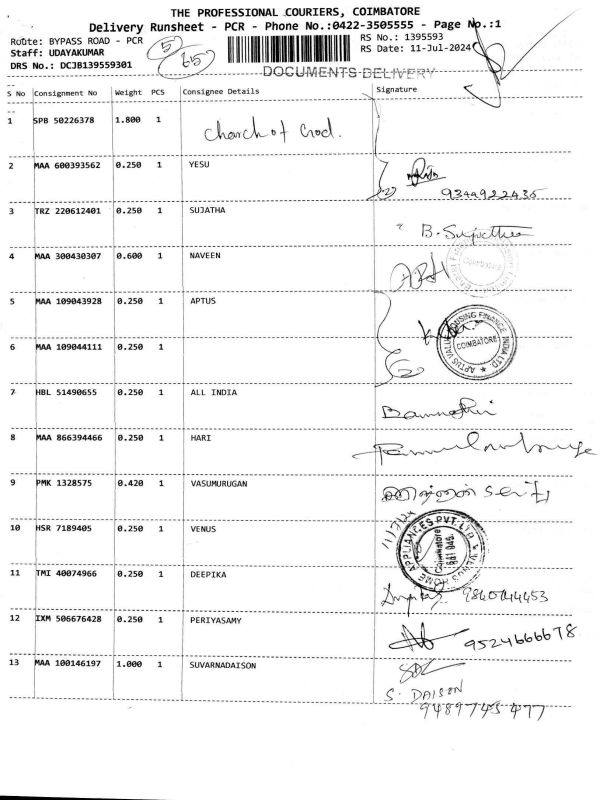 THE PROFESSIONAL COURIERS, COIMBATORE
Delivery Runsheet - PCR - Phone No.:0422-3505555 - Page No.:1
Route: BYPASS ROAD - PCR
RS No.: 1395593
Staff: UDAYAKUMAR
RS Date: 11-Jul-2024
DRS No.: DCJB139559301
DOCUMENTS DELIVERY
S No Consignment No Weight PCS Consignee Details Signature
1 SPB 50226378 1.800 1 Charch of God.
2 MAA 600393562 0.250 1 YESU
9344922435
3 TRZ 220612401 0.250 1 SUJATHA
B. Sujatha
4 MAA 300430307 0.600 1 NAVEEN
5 MAA 109043928 0.250 1 APTUS
APTUS VALUE HOUSING FINANCE INDIA LTD
COIMBATORE
6 MAA 109044111 0.250 1
7 HBL 51490655 0.250 1 ALL INDIA
8 MAA 866394466 0.250 1 HARI
9 PMK 1328575 0.420 1 VASUMURUGAN
10 HSR 7189405 0.250 1 VENUS
VENUS HOME APPLIANCES PVT. LTD
Coimbatore
641 045.
11 TMI 40074966 0.250 1 DEEPIKA
12 IXM 506676428 0.250 1 PERIYASAMY
9524666678
13 MAA 100146197 1.000 1 SUVARNADAISON
S. DAISON
9489745477